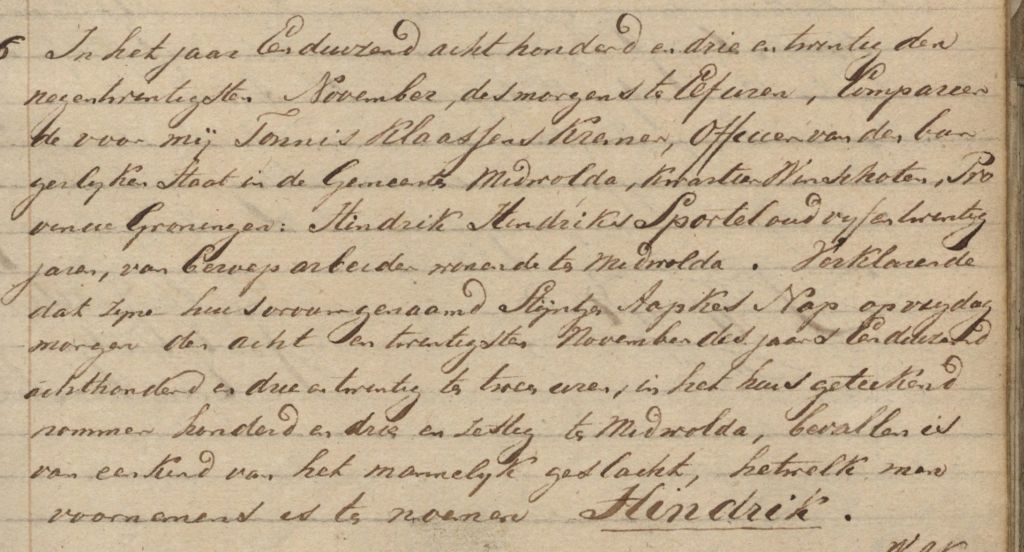 In het jaar Eenduizend acht honderd en drie en twentig den
negentwentigsten November, des morgens te Elf uren, Compareer
de voor mij Tonnis Klaassens Kremer, Officier van den bur
gerlyken Staat in de Gemeente Midwolda, kwartier Winschoten, Pro
vincie Groningen: Hindrik Hindriks Sportel oud vyf en twentig
jaren, van beroep arbeider wonende te Midwolda. Verklarende
dat zyne huisvrouw genaamd Stijntje Aapkes Nap op vrydag
morgen den acht en twentigsten November des jaars Eenduizend
achthonderd en drie en twentig te twee uren, in het huis geteekend
nommer honderd en drie en zestig te Midwolda, bevallen is
van een kind van het mannelyk geslacht, hetwelk men
voornemens is te noemen Hindrik.